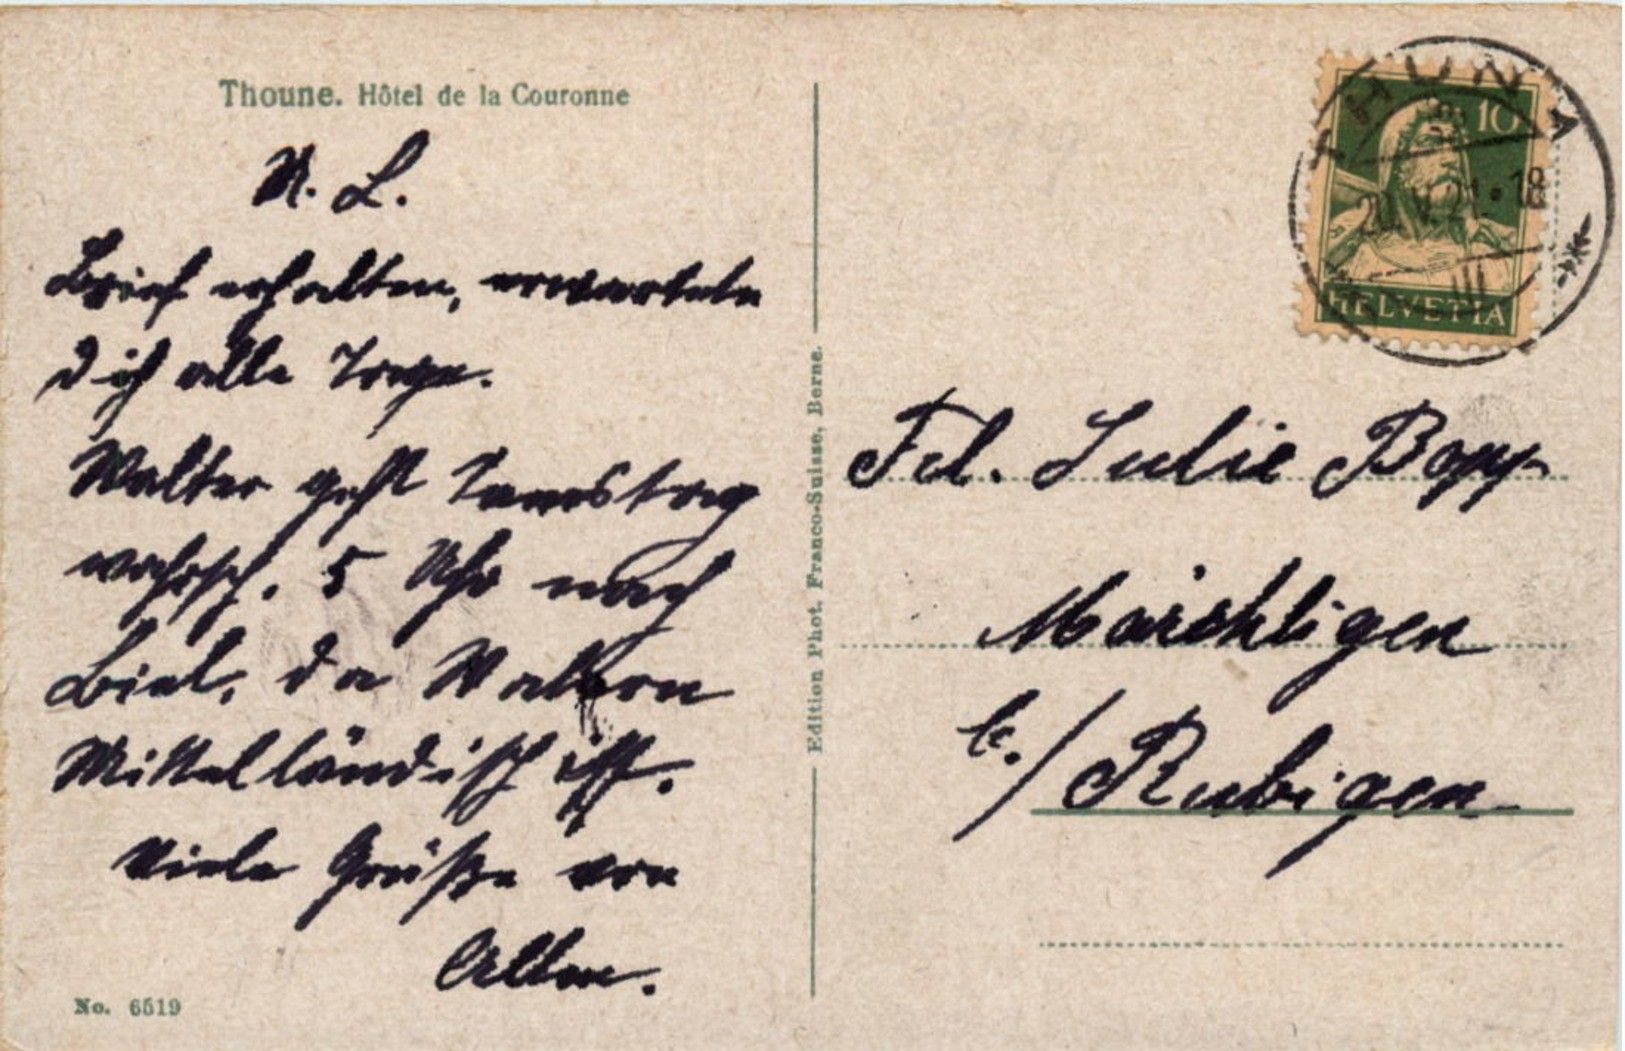 Thoune. Hôtel de la Couronne
M. L.
Brief erhalten, erwartete
dich alle Tage.
Walter geht Samstag
wahrsch. 5 Uhr nach
Biel, da
Mittelländisch ist.
Viele Grüße von
No. 6519
Edition Phot. Franco-Suisse, Berne.
THUN
20.V.21·18
III
10
HELVETIA
Frl. Julie Bopp
Märchligen
b./Rubigen